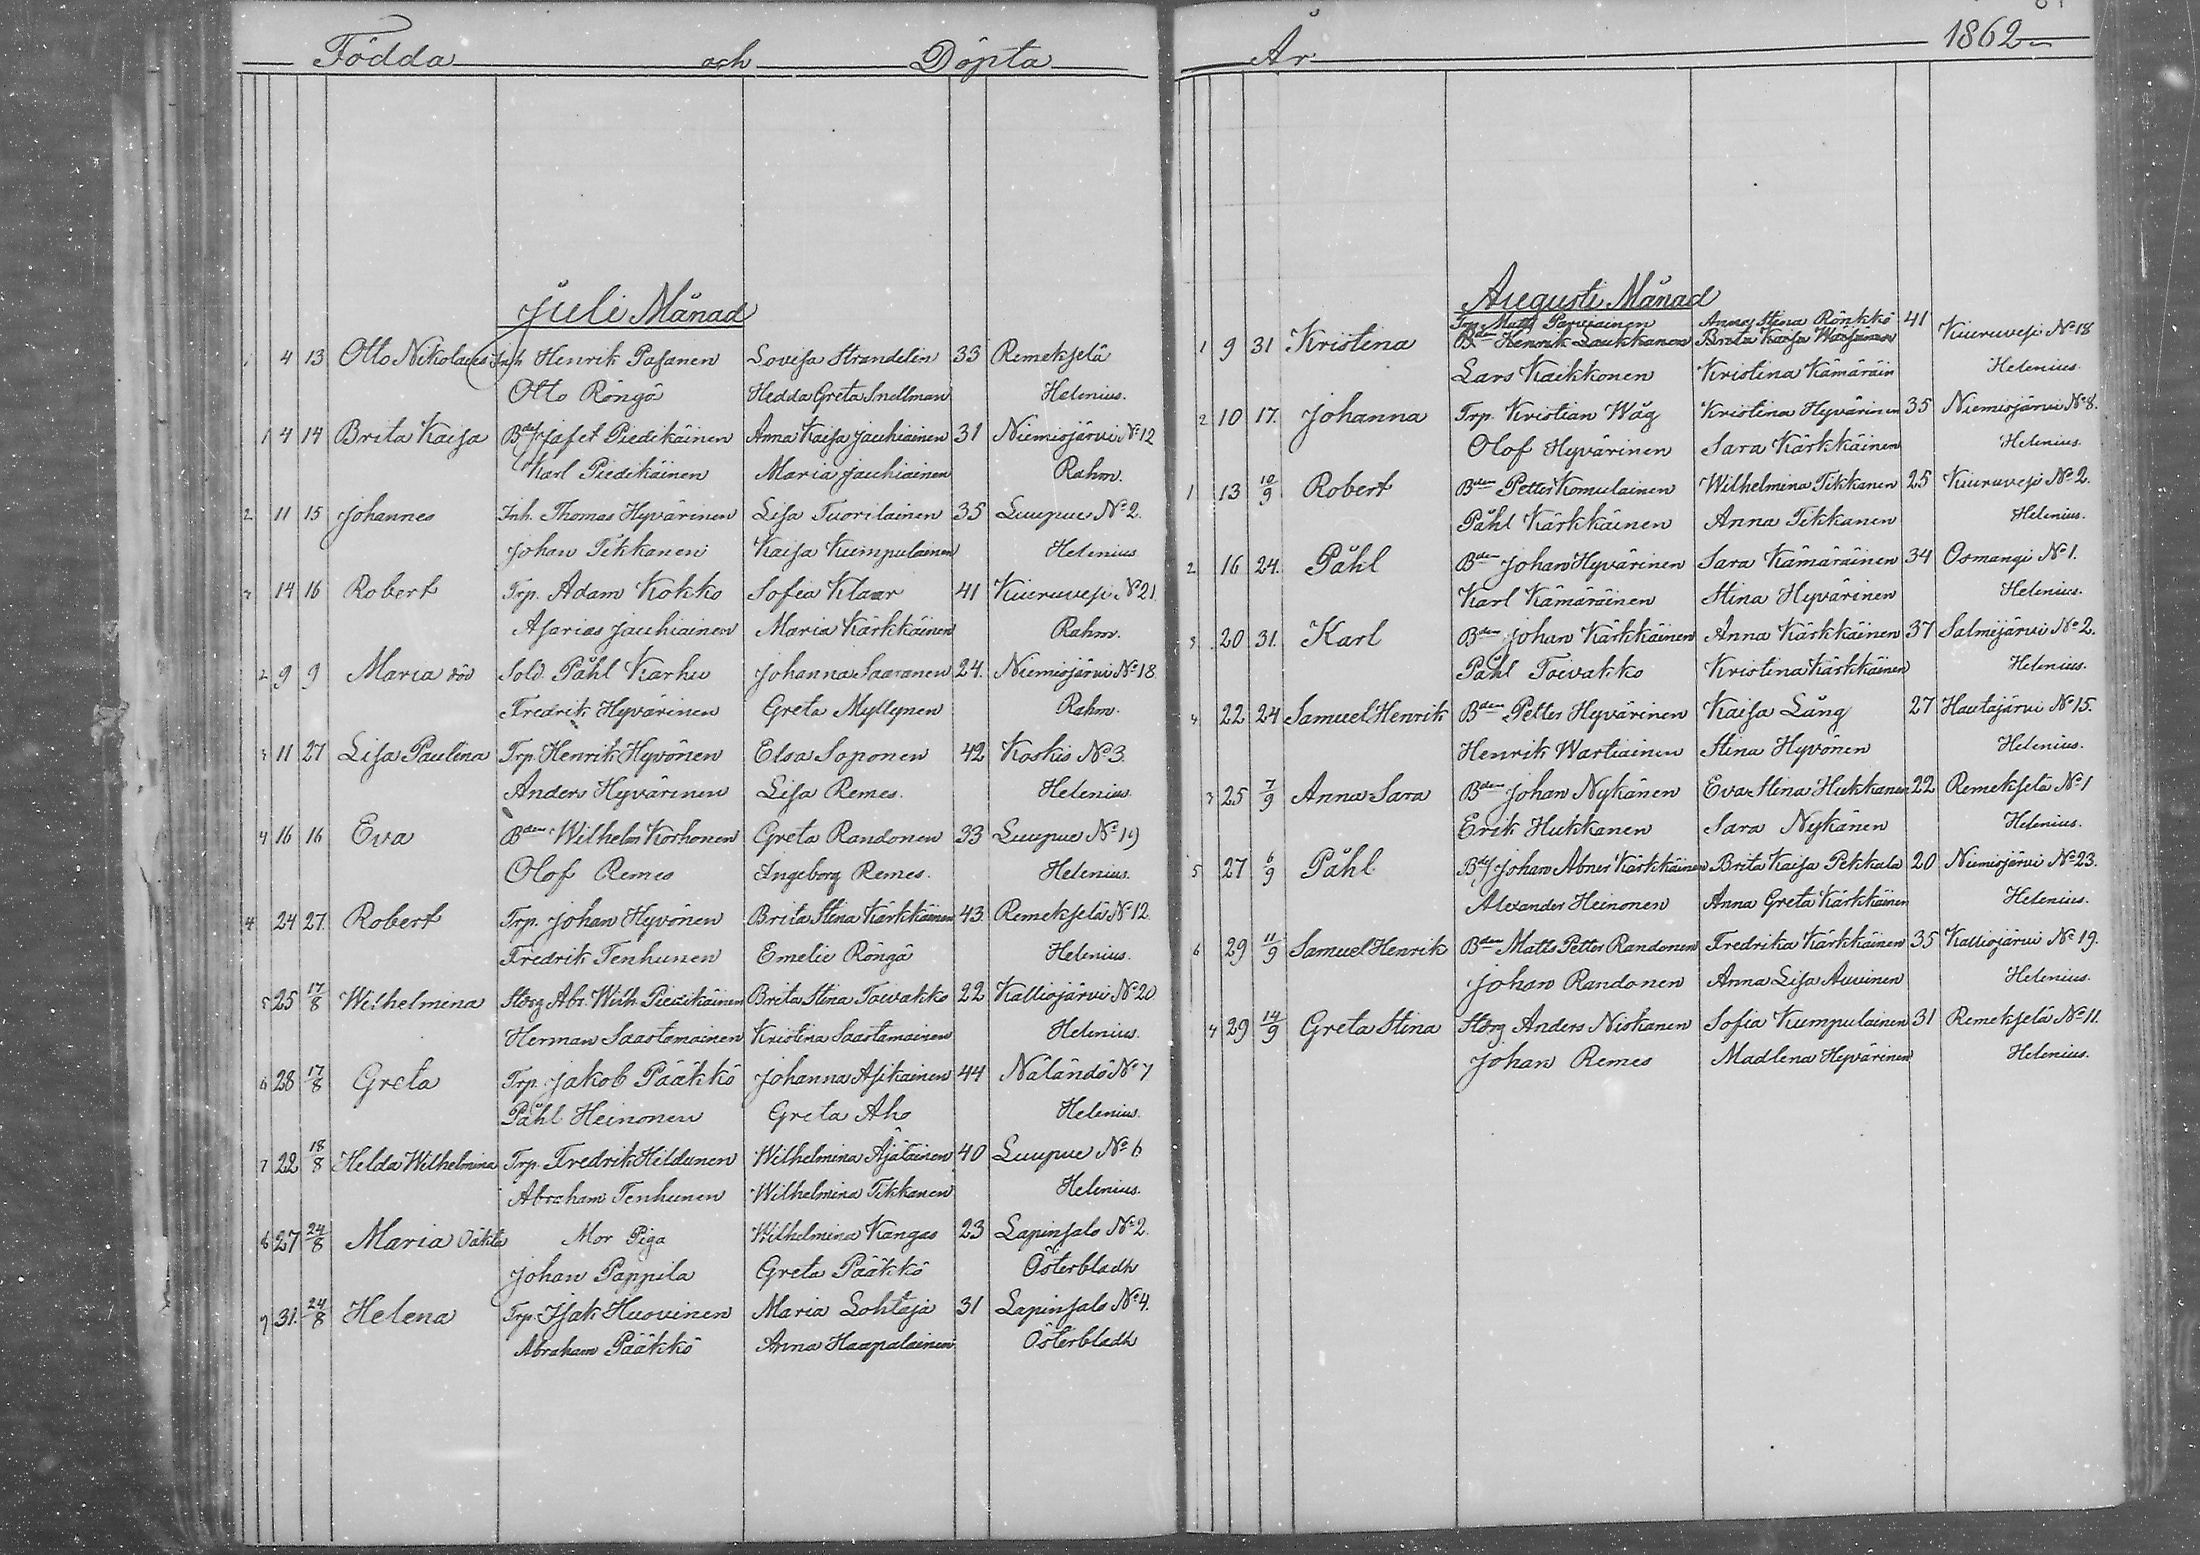 Födda och Döpta
Juli Månad
4 13 Otto Nikolaus Inh. Henrik Pasanen Lovisa Strandelin 33 Remekselä
Otto Röngö Hedda Greta Snellman Helenius.
1 4 14 Brita Kaisa Bdes Jafet Piedikäinen Anna Kaisa Jauhiainen 31 Niemisjärvi No 12
Karl Piedikäinen Maria Jauhiainen Rahm.
2 11 15 Johannes Inh. Thomas Hyvärinen Lisa Tuorilainen 35 Luupue No 2.
Johan Tikkanen Kaisa Kumpulainen Helenius
14 16 Robert Trp. Adam Kokko Sofia Klaar 41 Kiuruvesi No 21.
Asarias Jauhiainen Maria Kärkkäinen Rahm.
2 9 9 Maria död Sold. Påhl Karhu Johanna Saaranen 24. Niemisjärvi No 18
Fredrik Hyvärinen Greta Myllynen Rahm.
3 11 27 Lisa Paulina Trp. Henrik Hyvönen Elsa Soponen 42 Koskis No 3.
Anders Hyvärinen Lisa Remes. Helenius
4 16 16 Eva Bden Wilhelm Korhonen Greta Randonen 33 Luupue No 19
Olof Remes Ingeborg Remes. Helenius.
4 24 27. Robert Trp. Johan Hyvönen Brita Stina Kärkkäinen 43. Remekselä No 12.
Fredrik Tenhunen Emelie Röngö Helenius.
5 25 17/8 Wilhelmina Storg Abr. Wilh. Piedikäinen Brita Stina Toivakko 22 Kalliojärvi No 20
Herman Saastamoinen Kristina Saastamoinen Helenius.
6 28 17/8 Greta Trp. Jakob Pääkkö Johanna Asikainen 44 Näländö No 7
Påhl Heinonen Greta Aho Helenius.
7 22 18/8 Helda Wilhelmina Trp. Fredrik Heldunen Wilhelmina Äjäläinen 40 Luupue No 6
Abraham Tenhunen Wilhelmina Tikkanen Helenius.
8 27 24/8 Maria Oäkta Mor Piga Wilhelmina Kangas 23 Lapinsalo No 2.
Johan Pappila Greta Pääkkö Österbladh
9 31. 24/8 Helena Trp. Isak Huovinen Maria Lohtaja 31 Lapinsalo No 4.
Abraham Pääkkö Anna Haapalainen Österbladh
År 1862
Augusti Månad
Trp. Matts Parviainen Anna Stina Rönkkö 41
1 9 31 Kristina Bden Henrik Laukkanen Brita Kaisa Kiuruvesi No 18
Lars Kaikkonen Kristina Kämäräin Helenius.
2 10 17. Johanna Trp. Kristian Wåg Kristina Hyvärinen 35 Niemisjärvi No 8.
Olof Hyvärinen Sara Kärkkäinen Helenius.
1 13 10/9 Robert Bden Petter Komulainen Wilhelmina Tikkanen 25 Kiuruvesi No 2.
Påhl Kärkkäinen Anna Tikkanen Helenius.
2 16 24. Påhl Bden Johan Hyvärinen Sara Kämäräinen 34 Osmangi No 1.
Karl Kämäräinen Stina Hyvärinen Helenius.
3 20 31. Karl Bden Johan Kärkkäinen Anna Kärkkäinen 37 Salmijärvi No 2.
Påhl Toivakko Kristina Kärkkäinen Helenius.
4 22 24 Samuel Henrik Bden Petter Hyvärinen Kaisa Lång 27 Hautajärvi No 15.
Henrik Wartiainen Stina Hyvönen Helenius.
3 25 7/9 Anna Sara Bden Johan Nykänen Eva Stina Hukkanen 22 Remekselä No 1
Erik Hukkanen Sara Nykänen Helenius.
5 27 6/9 Påhl Bdes Johan Abner Kärkkäinen Brita Kaisa Pekkala 20 Niemisjärvi No 23.
Alexander Heinonen Anna Greta Kärkkäinen Helenius.
6 29 11/9 Samuel Henrik Bden Matts Petter Randonen Fredrika Kärkkäinen 35 Kalliojärvi No 19.
Johan Randonen Anna Lisa Auvinen Helenius.
4 29 14/9 Greta Stina Storg. Anders Niskanen Sofia Kumpulainen 31 Remekselä No 11.
Johan Remes Madlena Hyvärinen Helenius.